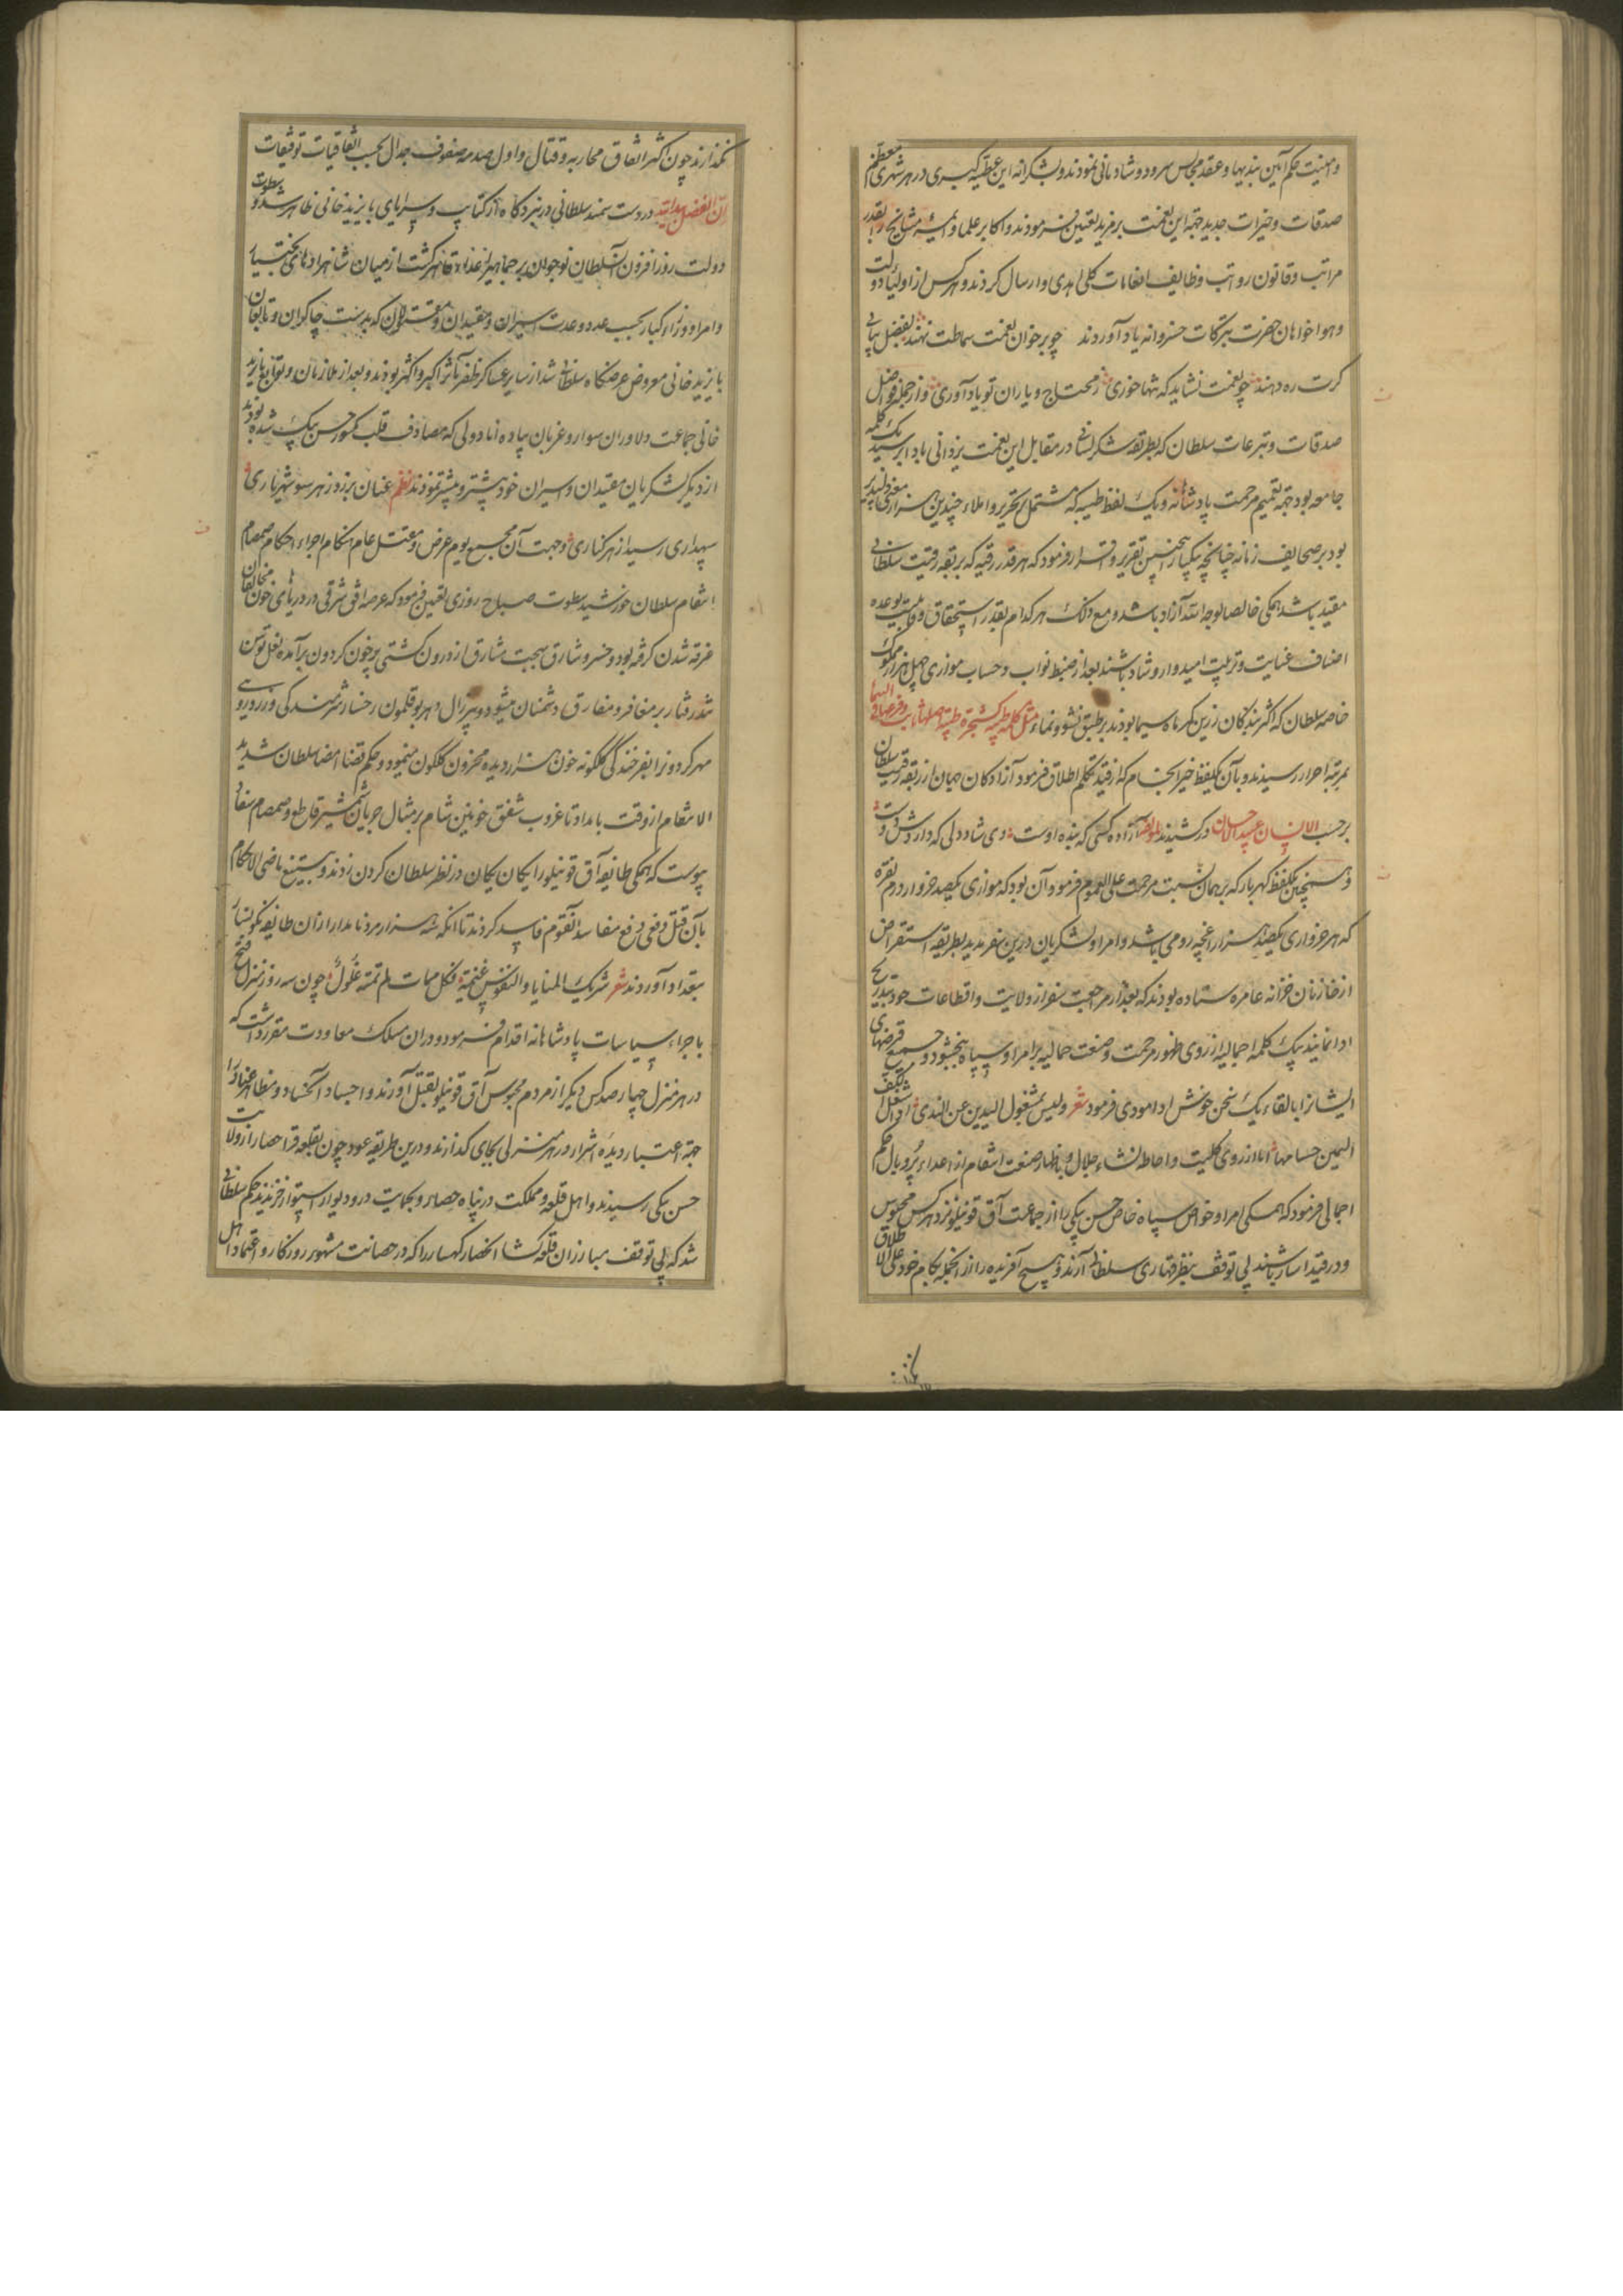 و امنیت حکم آیین بندیها و عقد مجالس سرود و شادمانی نمودند و بشکرانه این عطیه کبری در هر شهری معظم
صدقات و خیرات جدید جهة این نعمت بر مزید تعیین فرمودند و اکابر علما و ائمه و مشایخ را بقدر
مراتب و قانون رواتب و ظایف انعامات کلی اهدی و ارسال کردند و هر کس از اولیاء دولت
و هوا خواهان حضرت بتبرکات خسروانه یاد آوردند چو بر خوان نعمت سماطت نهند بفضل
کرت ره دهند چو نعمت نشاید که تنها خوری ز محتاج و یاران تو یاد آوری و از جمله فواضل
صدقات و تبرعات سلطان که بطریقه شکر لسانی در مقابل این نعمت یزدانی باد ابر سید یک کلمه
جامعه بود جهة تعمیم مرحمت پادشاهانه و یک لفظ طیبه که مشتمل بتحریر و املاء چندین هزار معنی دلپذیر
بود بر صحایف زمانه چنانچه یکبار اینچنین تقریر و اقرار فرمود که هر قدر رقبه که بربقه رقیت سلطانی
مقید باشد همکی خالصا لوجه الله آزاد باشد و مع ذلک هر کدام بقدر استحقاق و قابلیت بوعده
اصناف عنایت و تربیت امیدوار و شاد باشند بعد از ضبط نواب و حساب موازی چهل هزار مملوک
خاصه سلطان که اکثر بندکان زرین کمر ماه سیما بودند بر طبق نشو و نماء مثل کلمة طیبة کشجرة طیبة اصلها ثابت و فرعها فی السماء
بمرتبه احرار رسیدند و بآن یکلفظ خیر انجام که از قید تحکم اطلاق فرمود آزادکان جهان از ربقه رقیت سلطان
بر حسب الانسان عبید الاحسان در کشیدند لمولفه آزاده کسی که بنده اوست دی شاد دلی که داردش دوست
و همچنین یکلفظ کهربار که بر همان نسبت مرحمت علی العموم فرمود آن بود که موازی یکصد خروار درم نقره
که هر خرواری یکصد هزار اغچه رومی باشد و امرا و لشکریان درین سفر مدید بطریقه استقراض
از خازنان خزانه عامره ستاده بودند که بعد از مراجعت سفر از ولایت و اقطاعات خود بتدریج
ادا نمایند بیک کلمه اجمالیه از روی ظهور مرحمت و صنعت جمالیه بر امرا و سپاه ببخشود و جمیع قرضهای
ایشانرا بالقاء یک سخن خوش ادا مودی فرمود شعر و لیس بمشغول الیدین عن الندی اذا شغل الکف
الیمین حسامها اما از روی کلیت و احاطه نشاء جلال و باظهار صنعت انتقام از اعداء پر و بال حکم
اجمالی فرمود که همکی امرا و خواص سپاه خاص حسن بیکی را از جماعت آق قوینیلو نزد هر کس محبوس
و در قید اسار باشند بی توقف بنظر قهاری سلطانی آرند و هیچ آفریده را از انجمله بکام خود علی الاطلاق
نکذارند چون اکثر اتفاق محاربه و قتال و اول صدمه صفوف جدال بحسب اتفاقیات توفیقات
ان الفضل بید الله در دست سمند سلطانی در نبردکاه از کتایب و سرایای بایزید خانی ظاهر شد و سطوت
دولت روزافزون آن سلطان نوجوان بر جماهیر اعداء قاهر کشت از میان شاهزادهای بختیار
و امرا و وزراء کبار بحسب عدد و عدت اسیران و مقیدان و مقتولان که بدست چاکران و تابعان
بایزید خانی معروض عرضکاه سلطانی شد از سایر عساکر ظفر مآثر اکبر و اکثر بودند و بعد از ملازمان و توابع بایزید
خانی جماعت دلاوران سوار و عزبان پیاده اناطولی که مصادف قلب حسن بیک شده بودند
از دیگر لشکریان مقیدان و اسیران خود بیشتر و پیشتر نمودند نظم عنان برزد ز هر سو شهریاری
سپهداری رسید از هر کناری و جهت آن مجمع یوم عرض و مقتل عام هنکام اجراء احکام صمصام
انتقام سلطان خورشید سطوت صباح روزی تعیین فرمود که عرصه افق شرقی در دریای خون مخالفان
غرقه شدن کرفته بود و خسرو شارق بهجت شارق از درون کشتی چون کردون برآمده نعل توسن
تند رفتار بر مغافر و مفارق دشمنان میسود و پیر زال دهر بوقلمون رخسار شرمندکی و زردرویی
مهر کردون را بفرخندکی کلکونه خون هزار دیده محزون کلکون مینمود و حکم قضا امضا سلطان شدید
الانتقام از وقت بامداد تا غروب شفق خونین شام بر مثال جریان شمشیر قاطع و صمصام
پیوست که همکی طایفه آق قوینیلو را یکان یکان در نظر سلطان کردن زدند و بتیغ ماضی الاحکام
بآن قتل دفعی رفع مفاسد آنقوم فاسد کردند تا آنکه سه هزار مرد نامدار از ان طایفه نکونسار
بتعداد آوردند شعر شریک المنایا و النفوس غنیمة فکل ممات لم تمته غلول چون سه روز در منزل فتح
باجراء سیاسات پادشاهانه اقدام فرمود و در ان مسلک معاودت مقرر داشت که
در هر منزل چهار صد کس دیگر از مردم محبوس آق قوینیلو بقتل آورند و اجساد آنحساد و مظاهر عناد را
جهة اعتبار دیده اشرار در هر منزلی بجای کذارند و درین طریقه عود چون بقلعه قراحصار از ولایت
حسن بیکی رسیدند و اهل قلعه و مملکت در پناه حصار و بحمایت در و دیوار استوار خزیدند حکم سلطانی
شد که بی توقف مبارزان قلعه کشا انحصار کهسار را که در حصانت مشهور روزکار و اعتماد اهل